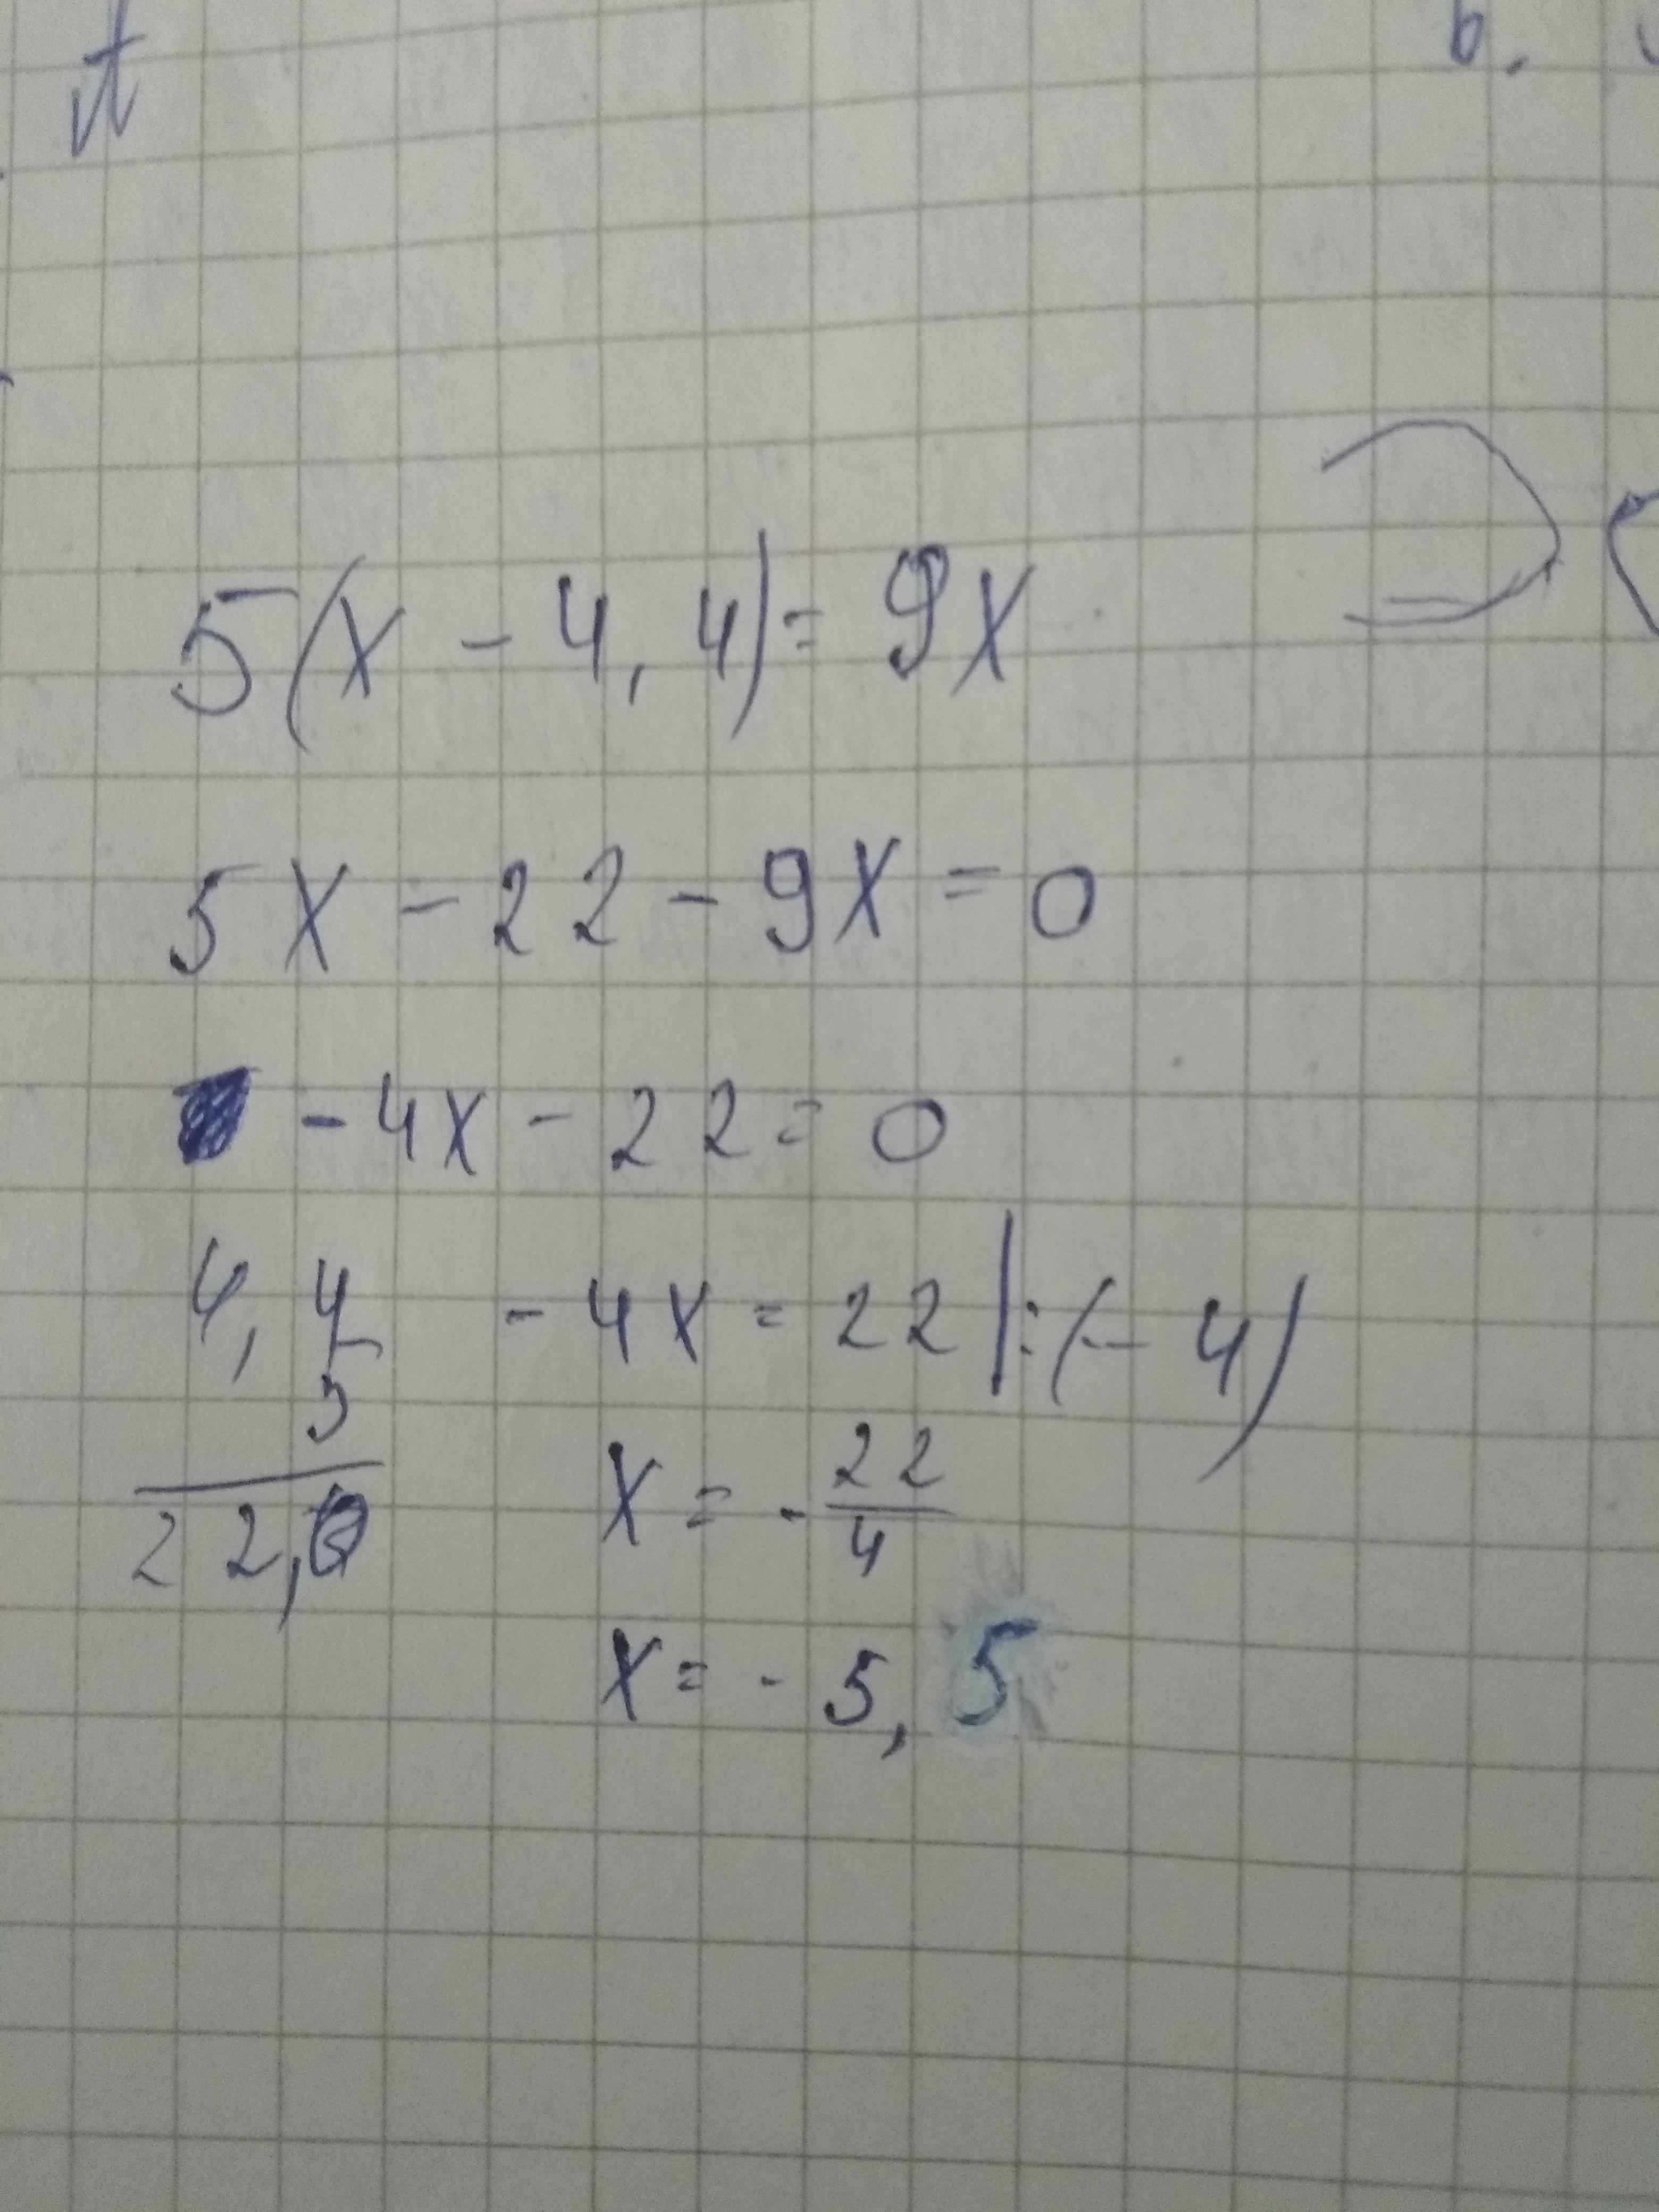 5(x - 4,4) = 9x
5x - 22 - 9x = 0
-4x - 22 = 0
4,4
5
22,0
-4x = 22 |:(-4)
x = -22/4
x = -5,5